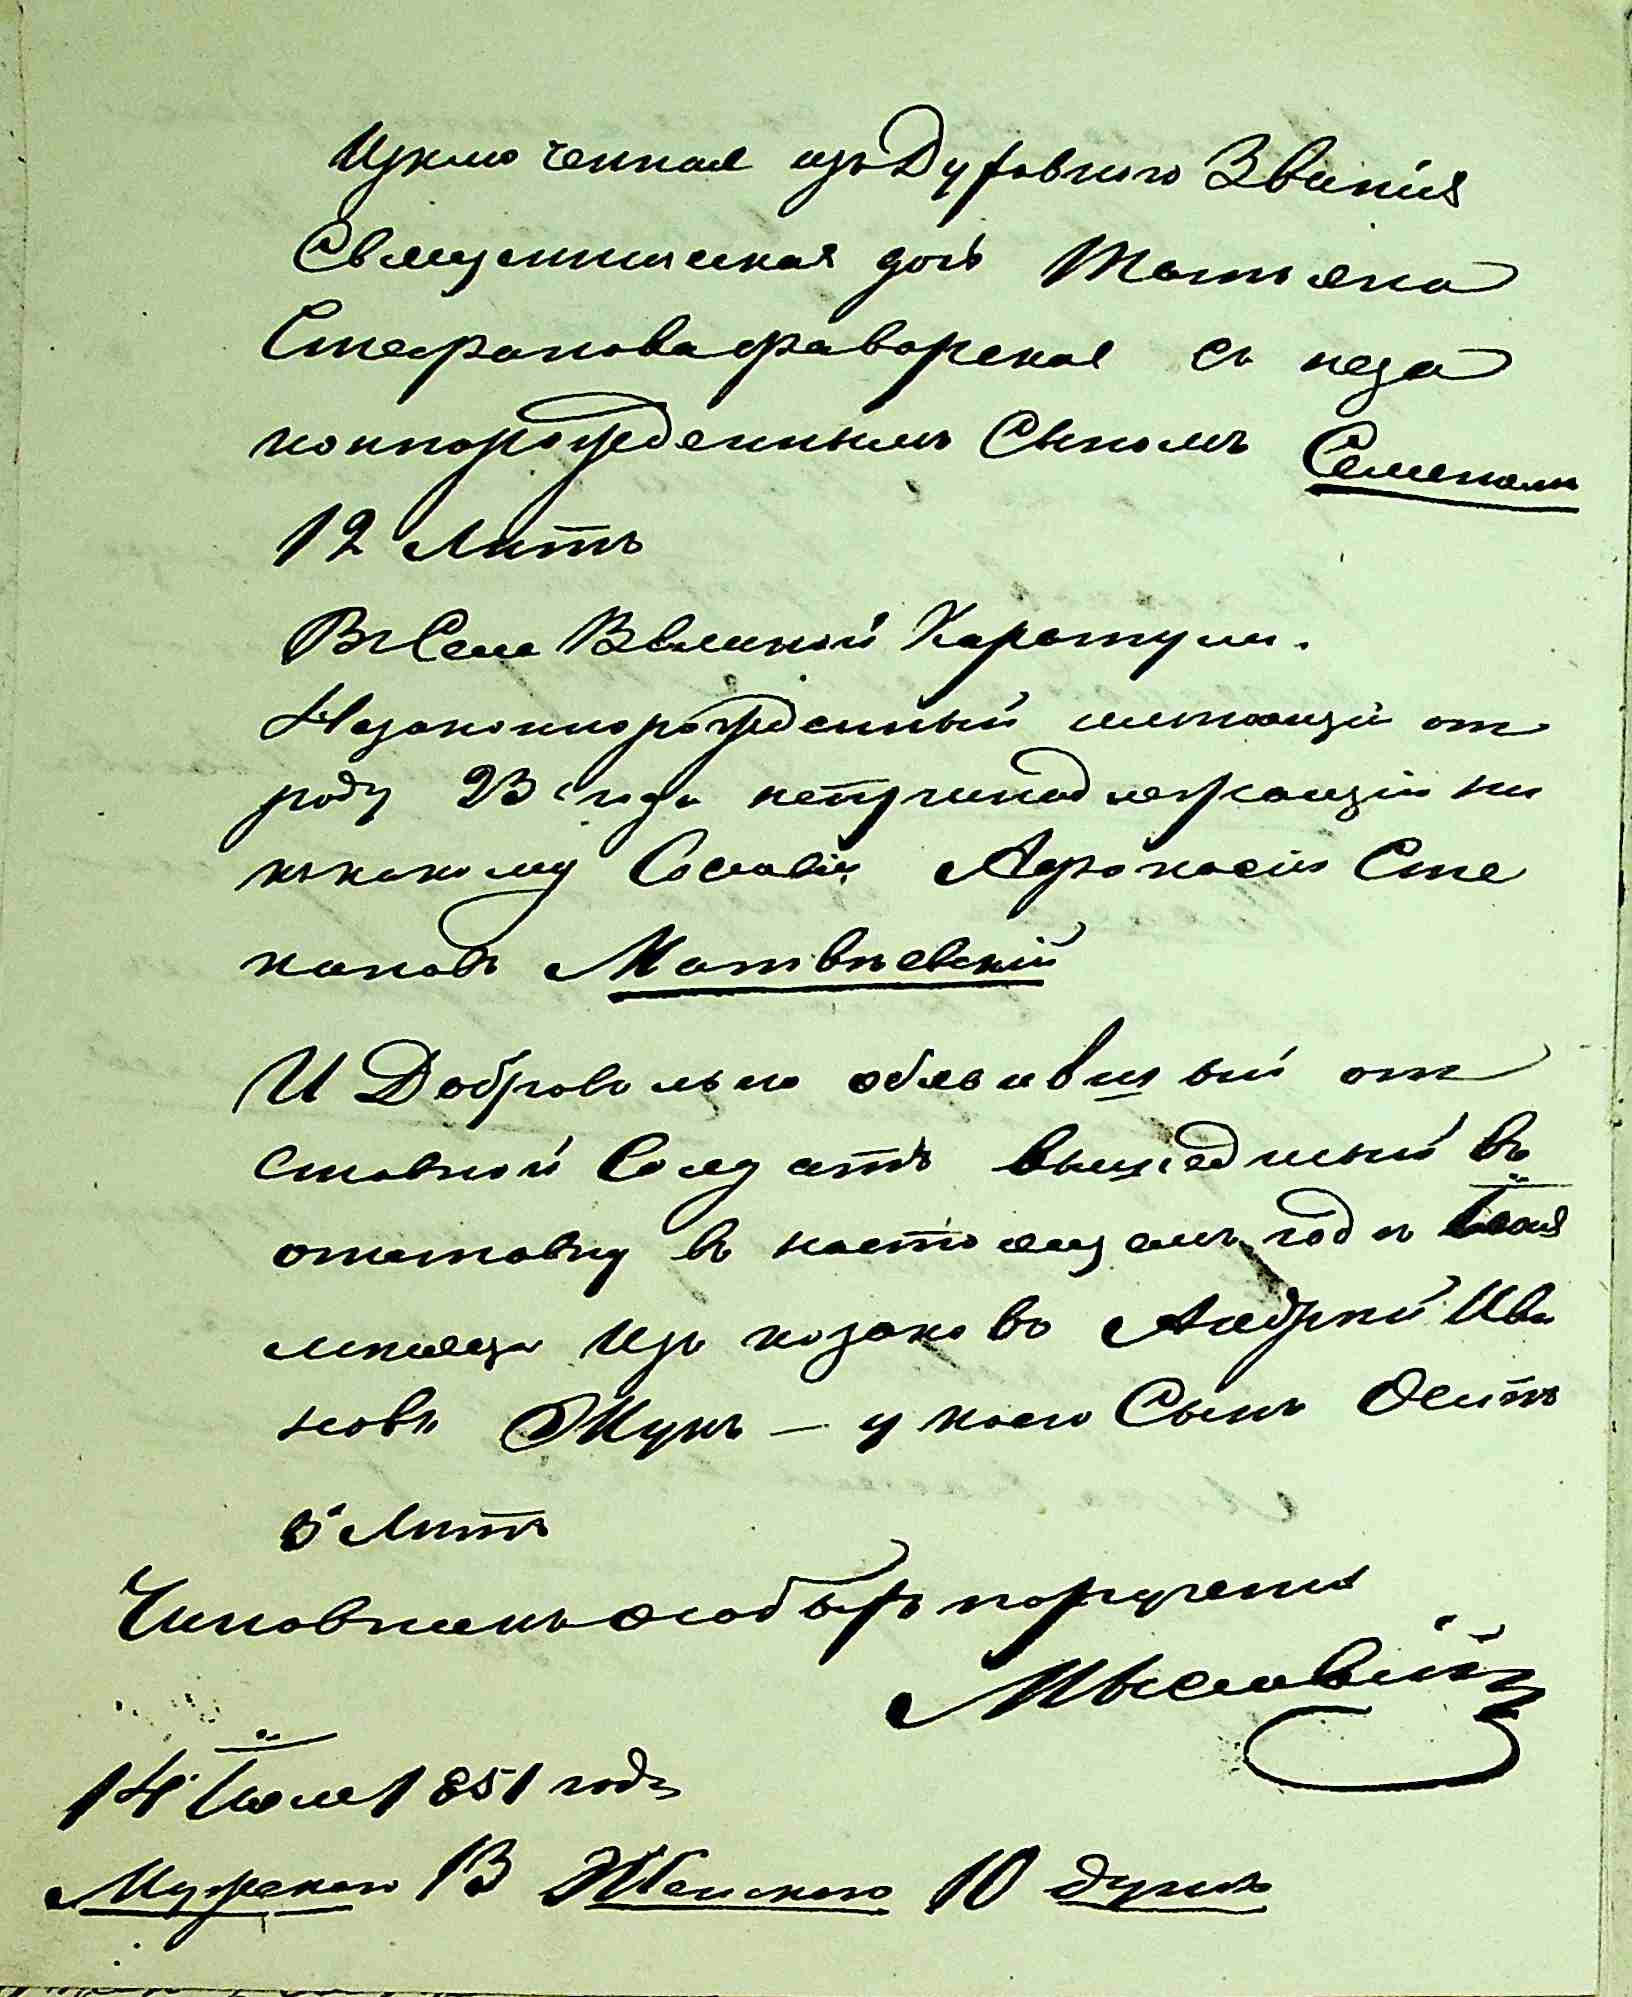 Изключенная изъ Духовнаго Званія
Священническая дочь Татьяна
Стефанова фаворская съ неза
коннорожденнымъ Сыномъ Семеномъ
12 Лѣтъ
Въ Селе Великой Каратули.
Незаконнорожденный имеющій от
роду 23 года непринадлежащій ни
къ какому Сословію Афанасій Сте
пановъ Матвѣевскій
И Добровольно объявившый от
ставной Солдатъ вышедшый въ
отставку въ настоящемъ годѣ Іюня
месяца Изъ козаковъ Андрей Ива
новъ Жукъ — у коего Сынъ Осипъ
5 Лѣтъ
Чиновникъ особыхъ порученій
14 Іюля 1851 года
Мужеска 13 Женскаго 10 душъ